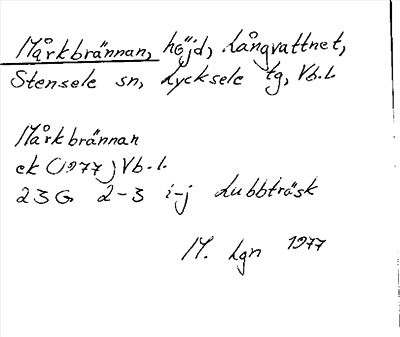 Mårkbrännan, höjd, Långvattnet,
Stensele sn, Lycksele tg, Vb.l.
Mårkbrännan
ek (1977) Vb.l.
23G 2-3 i-j Lubbträsk
M. Lgn 1977